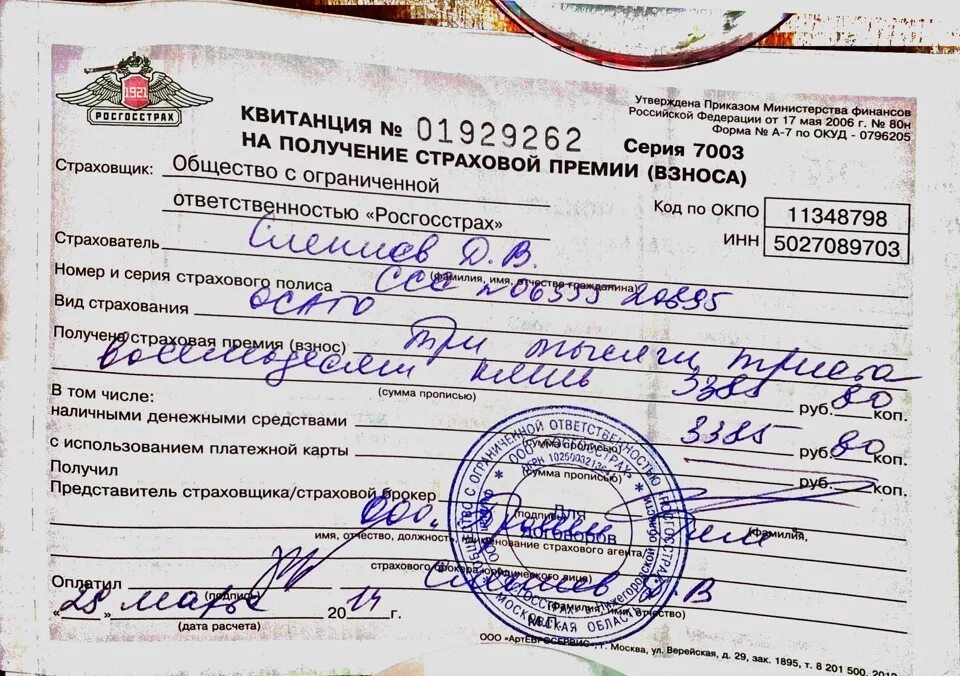 1921
РОСГОССТРАХ
Утверждена Приказом Министерства Финансов
Российской Федерации от 17 мая 2006 г. № 80н
Форма № А-7 по ОКУД - 0796205
КВИТАНЦИЯ № 01929262 Серия 7003
НА ПОЛУЧЕНИЕ СТРАХОВОЙ ПРЕМИИ (ВЗНОСА)
Страховщик: Общество с ограниченной
ответственностью «Росгосстрах»
Код по ОКПО 11348798
ИНН 5027089703
Страхователь Д. В.
(фамилия, имя, отчество гражданина)
Номер и серия страхового полиса ССС №
Вид страхования ОСАГО
Получена страховая премия (взнос) Три тысячи триста
восемьдесят 3385 руб. 80 коп.
(сумма прописью)
В том числе:
наличными денежными средствами 3385 руб. 80 коп.
(сумма прописью)
с использованием платежной карты руб. коп.
(сумма прописью)
Получил
Представитель страховщика/страховой брокер
(подпись) (фамилия,
ООО
имя, отчество, должность, наименование страхового агента/
страхового брокера-юридического лица)
Оплатил Д. В
(подпись) (фамилия, имя, отчество)
«28» марта 2014 г.
(дата расчета)
ОБЩЕСТВО С ОГРАНИЧЕННОЙ ОТВЕТСТВЕННОСТЬЮ «РОСГОССТРАХ»
ООО «РОСГОССТРАХ»
Для
договоров
МОСКОВСКАЯ ОБЛАСТЬ
ООО «АртЕВРОСЕРВИС», г. Москва, ул. Верейская, д. 29, зак. 1895, т. 8 201 500, 2010